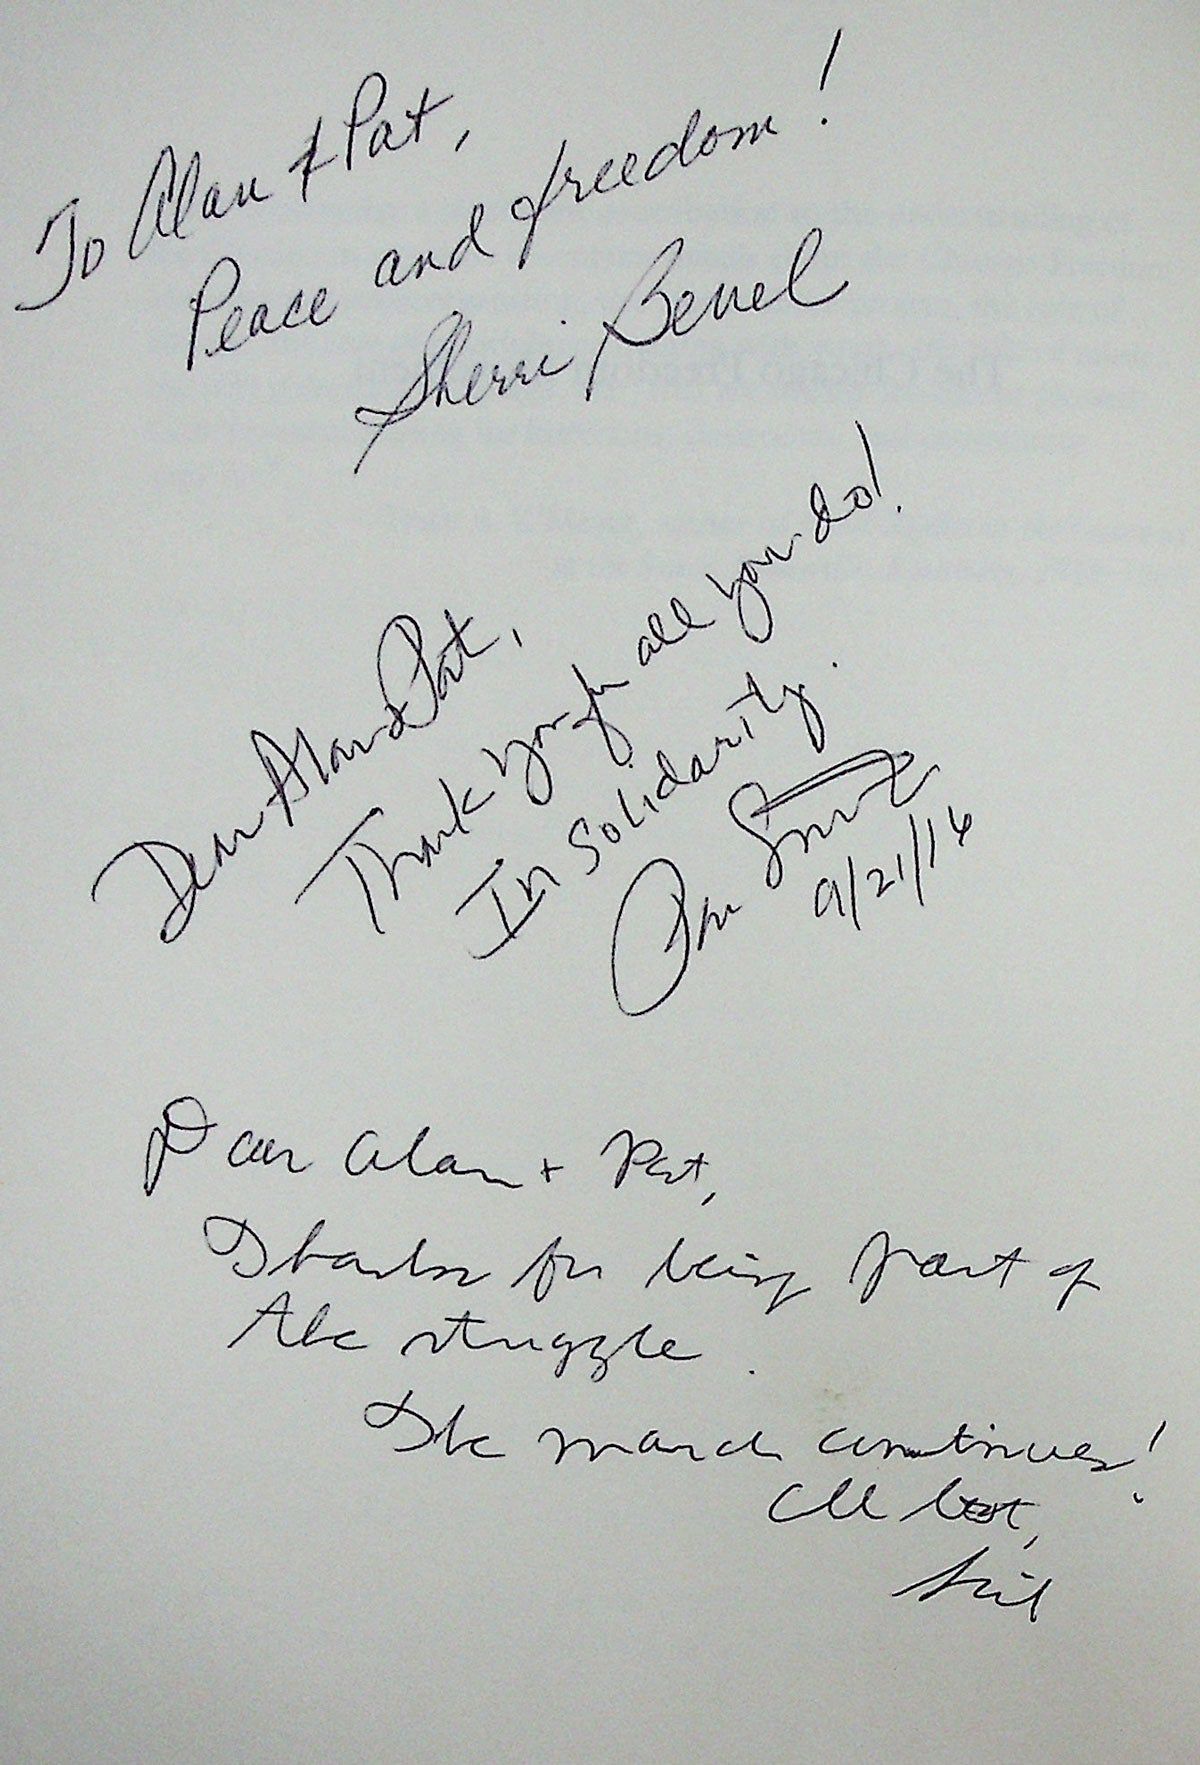 To Alan & Pat,
Peace and freedom!
Sherri Bevel
Dear Alan & Pat,
Thank you for all you do!
In Solidarity.
Pam
9/21/16
Dear Alan + Pat,
Thanks for being part of
the struggle.
The march continues!
All best,